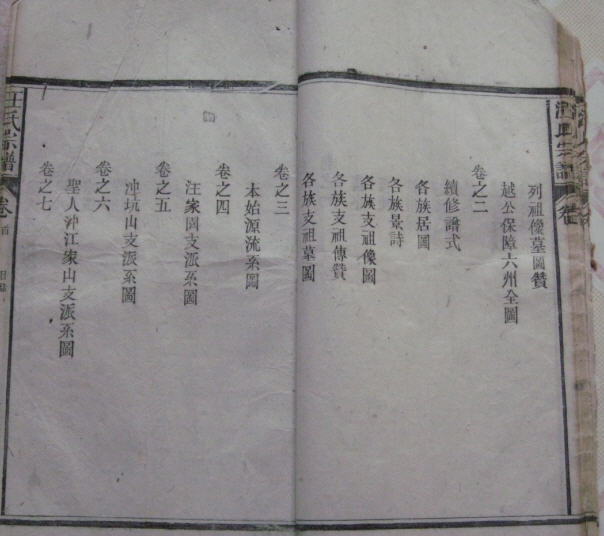 列祖像墓圖贊
越公保障六州全圖
卷之二
續修譜式
各族居圖
各族景詩
各族支祖像圖
各族支祖傳贊
各族支祖墓圖
卷之三
本始源流系圖
卷之四
汪家圖支派系圖
卷之五
冲坑山支派系圖
卷之六
聖人冲江家山支派系圖
卷之七
汪氏宗譜
卷首